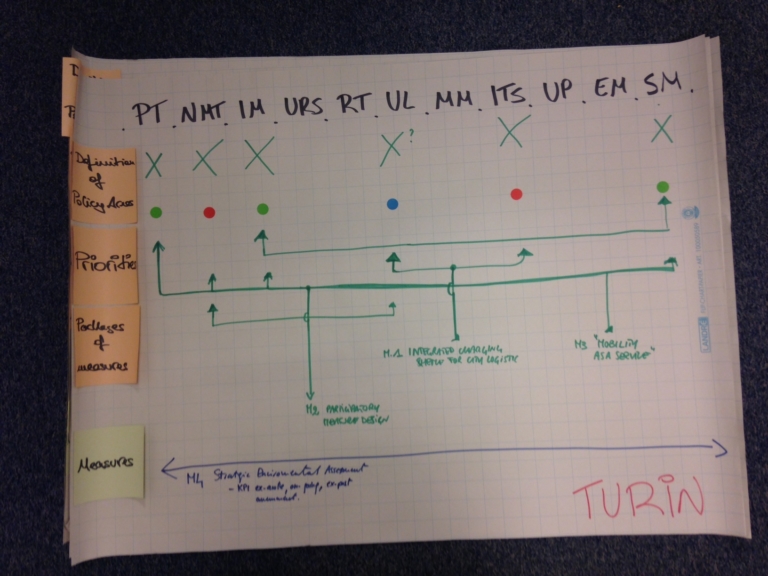 PT. NMT. IM. URS. RT. UL. MM. ITS. UP. EM. SM.
Definition
of
Policy Areas
X X X X? X X
Priorities
Packages
of
measures
M1 INTEGRATED CHARGING
FOR CITY LOGISTIC
M3 "MOBILITY
AS A SERVICE"
M2 PARTICIPATORY
MEASURE DESIGN
Measures
M4 Strategic Environmental Assessment
- KPI ex-ante, ex-post
TURIN
LANDRÉ